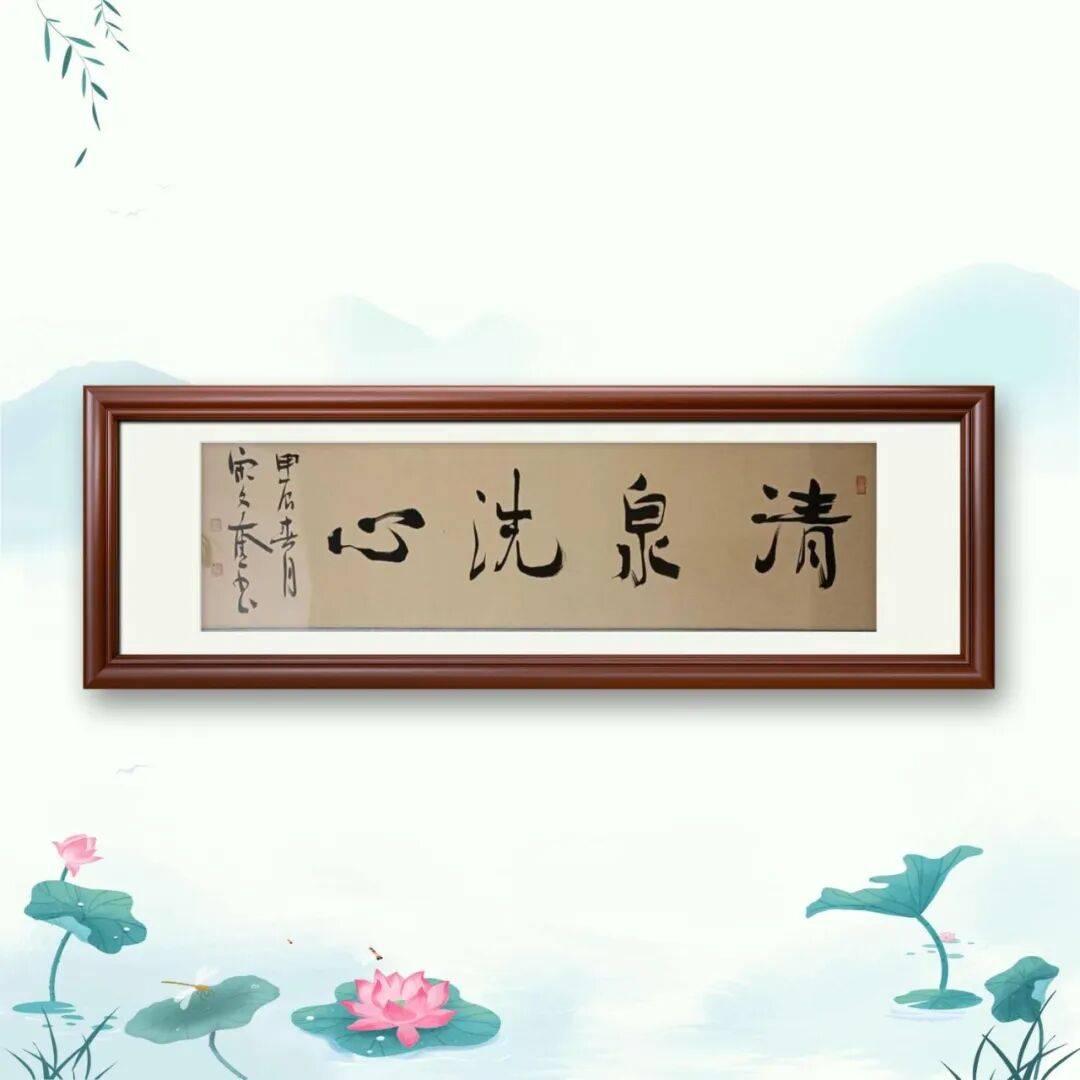 清泉洗心
甲辰春月
宋文奎书